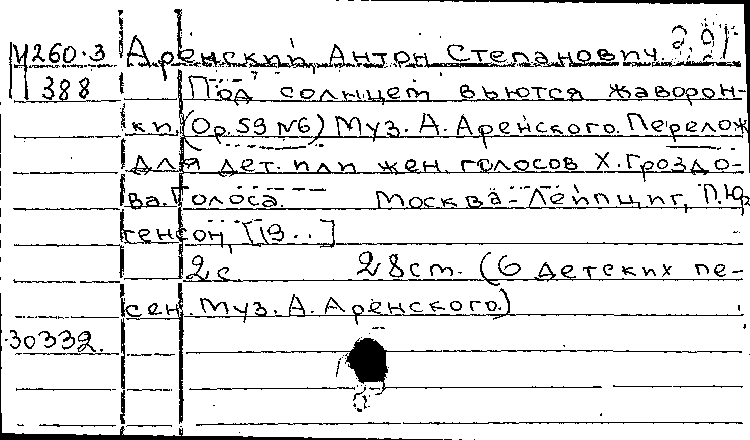 М260.3 Аренский, Антон Степанович.
388 Под солнцем вьются жаворон-
ки. (Op. 59 №6) Муз. А. Аренского. Перелож
для дет. или жен. голосов Х. Гроздо-
ва. Голоса. Москва-Лейпциг, П. Юр
генсон, [19..]
2 с 28 ст. (6 детских пе-
сен. Муз. А. Аренского.)
30332.